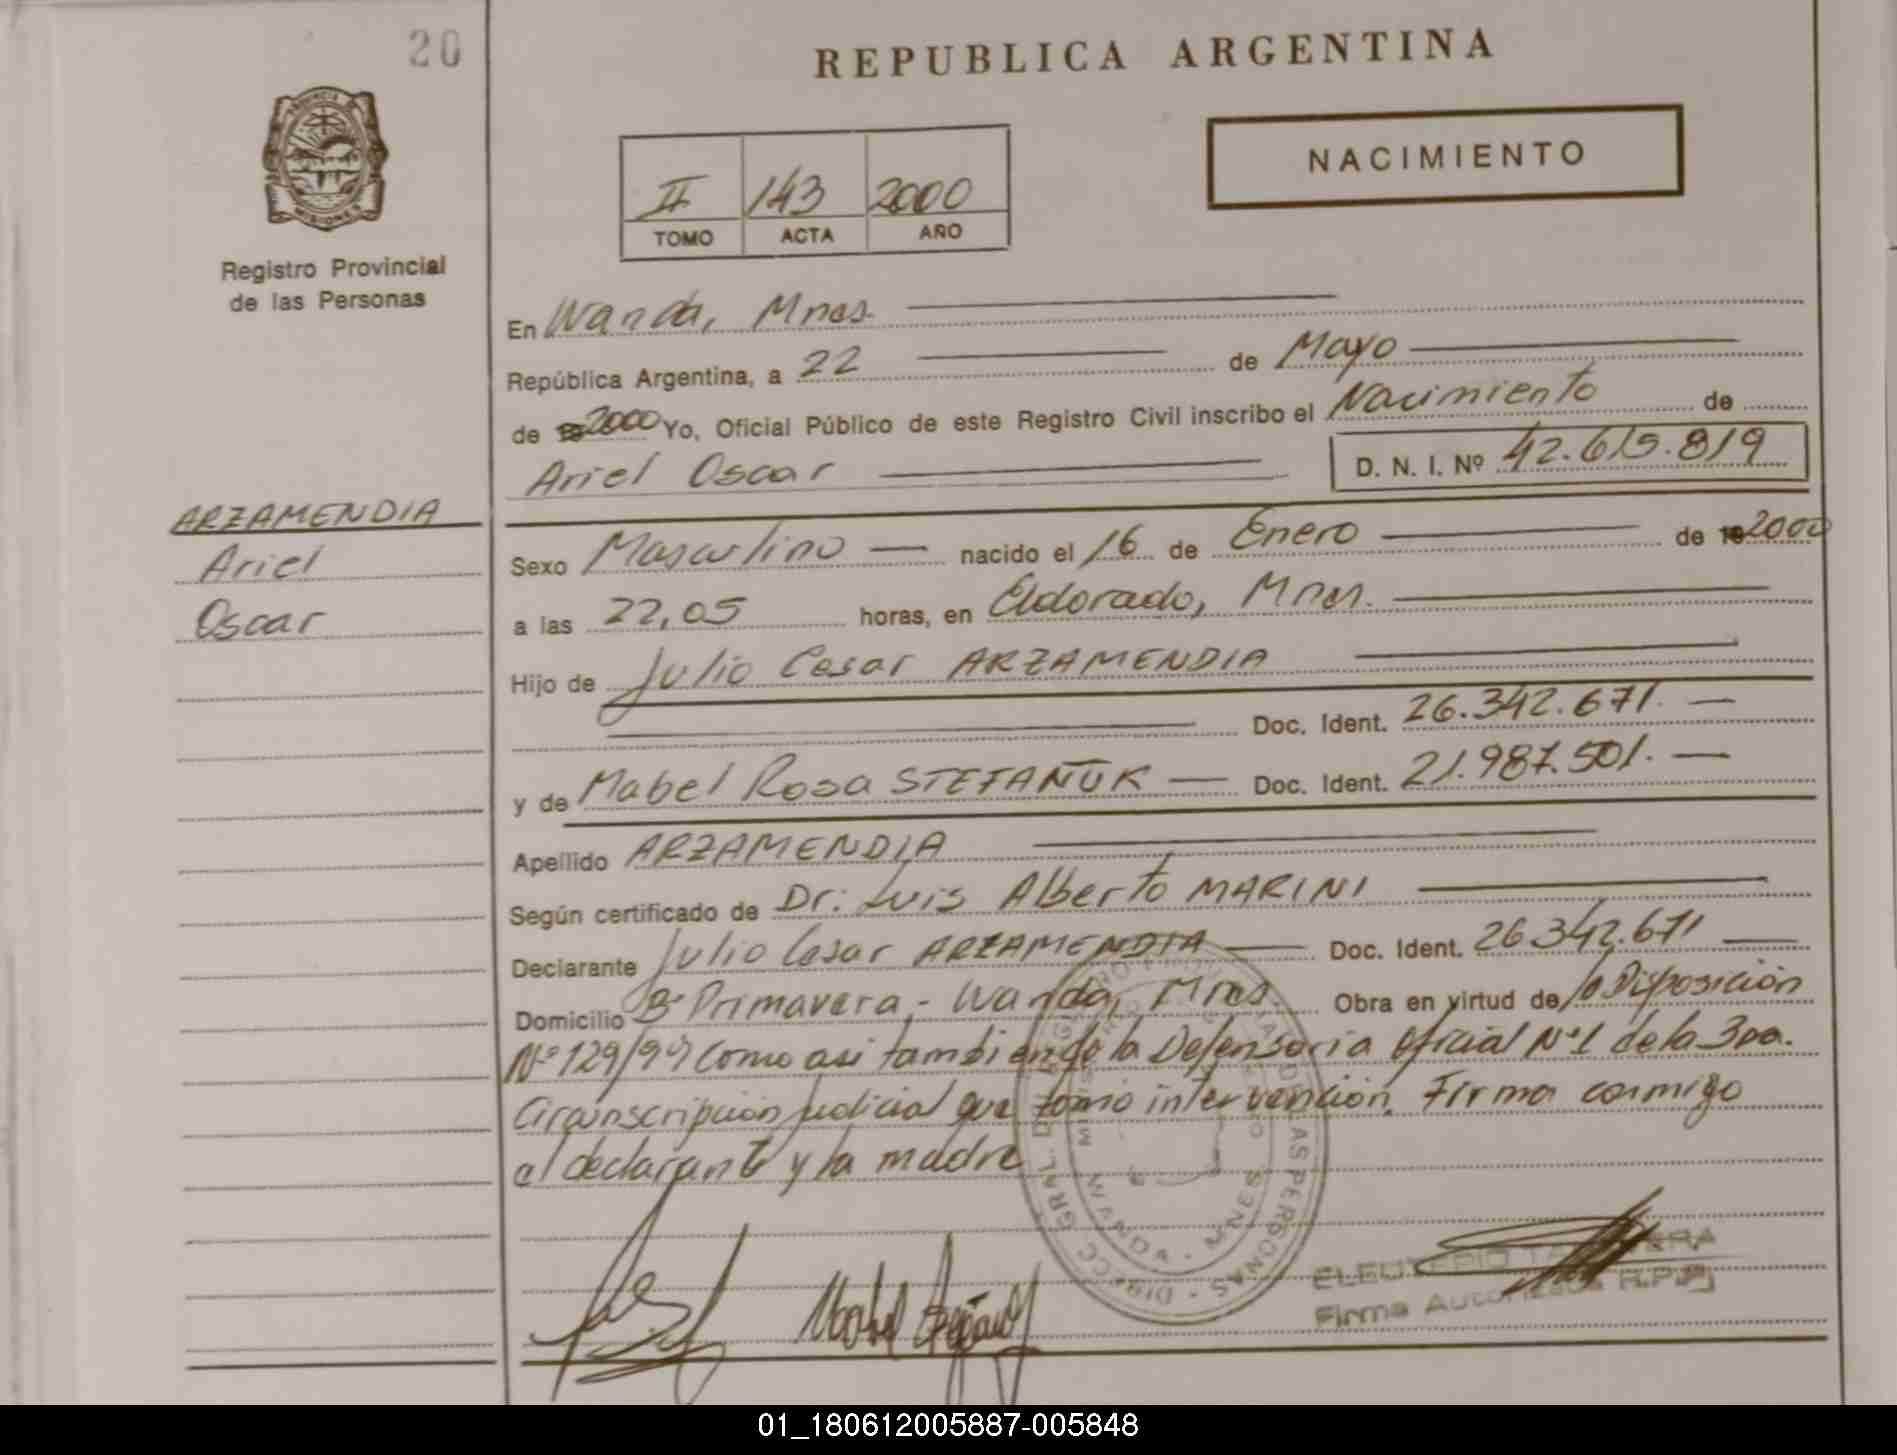 20
REPUBLICA ARGENTINA
PROVINCIA DE
MISIONES
Registro Provincial
de las Personas
NACIMIENTO
II 143 2000
TOMO ACTA AÑO
En Wanda, Mnes.
República Argentina, a 22 de Mayo
de 2000 Yo, Oficial Público de este Registro Civil inscribo el Nacimiento de
Ariel Oscar D. N. I. Nº 42.615.819
ARZAMENDIA
Ariel
Oscar
Sexo Masculino nacido el 16 de Enero de 2000
a las 22,05 horas, en Eldorado, Mnes.
Hijo de Julio Cesar ARZAMENDIA
Doc. Ident. 26.342.671.
y de Mabel Rosa STEFAÑUK Doc. Ident. 21.987.501.
Apellido ARZAMENDIA
Según certificado de Dr. Luis Alberto MARINI
Declarante Julio Cesar ARZAMENDIA Doc. Ident. 26.342.671
Domicilio Bº Primavera - Wanda, Mnes. Obra en virtud de la Disposición
Nº 129/94 como asi tambien de la Defensoria Oficial Nº 1 de la 3ra.
Circunscripción Judicial que tomó intervención. Firma conmigo
el declarante y la madre
WANDA - MNES
Firma Autorizada R.P.P.
01_180612005887-005848